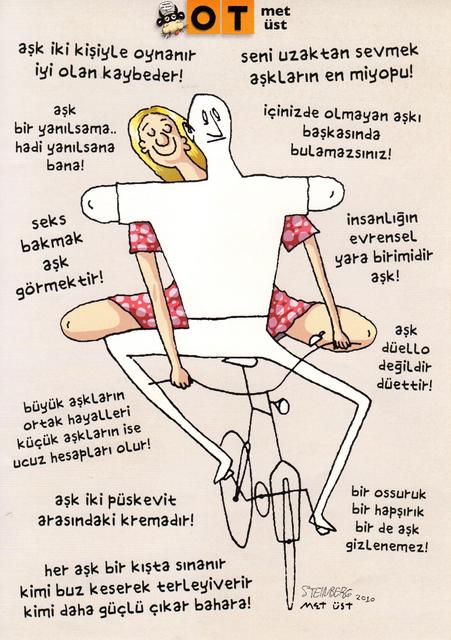 OT
met
üst
aşk iki kişiyle oynanır
iyi olan kaybeder!
seni uzaktan sevmek
aşkların en miyopu!
aşk
bir yanılsama..
hadi yanılsana
bana!
içinizde olmayan aşkı
başkasında
bulamazsınız!
seks
bakmak
aşk
görmektir!
insanlığın
evrensel
yara birimidir
aşk!
aşk
düello
değildir
düettir!
büyük aşkların
ortak hayalleri
küçük aşkların ise
ucuz hesapları olur!
aşk iki püskevit
arasındaki kremadır!
bir ossuruk
bir hapşırık
bir de aşk
gizlenemez!
her aşk bir kışta sınanır
kimi buz keserek terleyiverir
kimi daha güçlü çıkar bahara!
STEINBERG
2010
MET ÜST